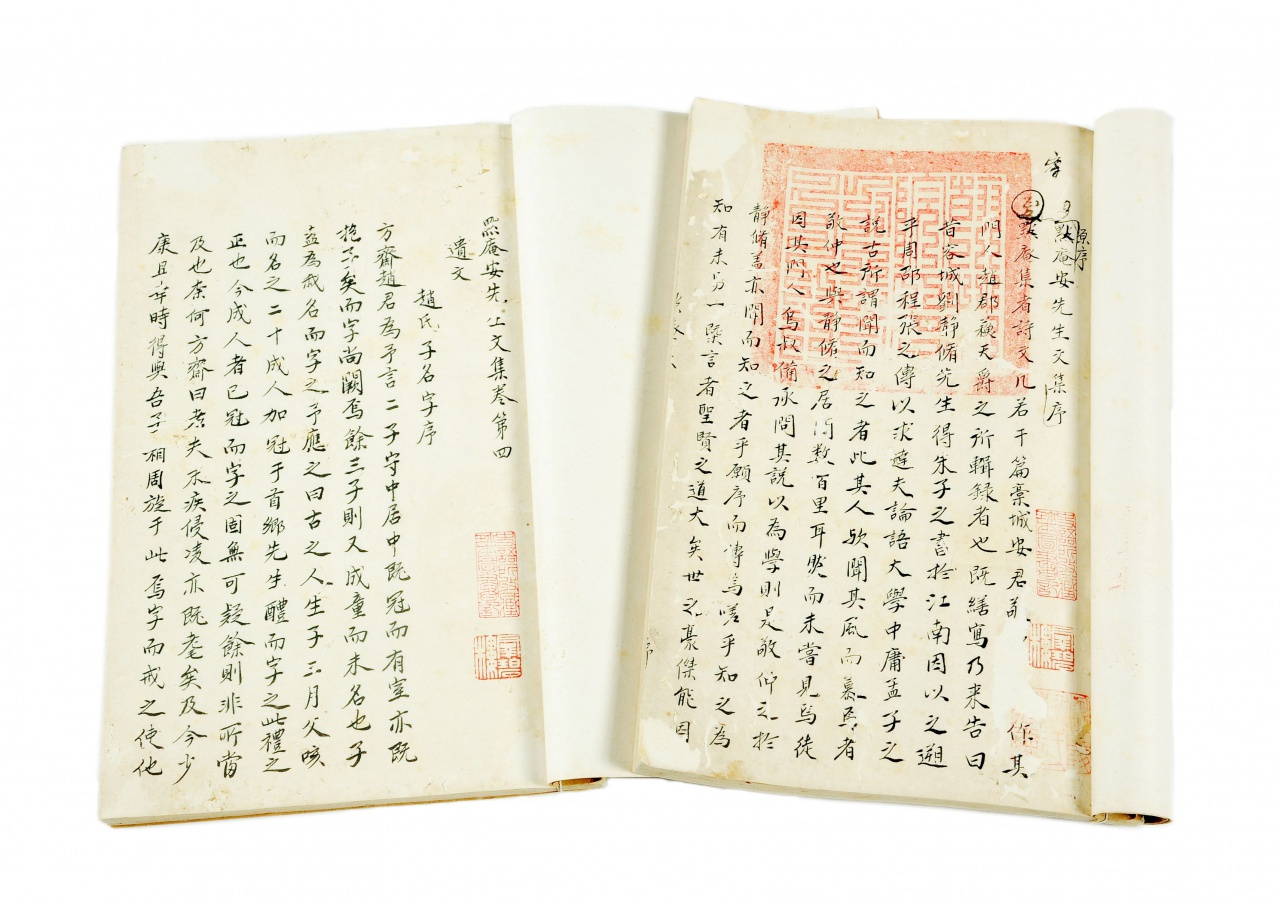 默庵安先生文集序
原序
默庵集者詩文凡若干篇藁城安君敬 作其
門人趙郡蘓天爵之所輯録者也既繕寫乃来告曰
昔容城劉静脩先生得朱子之書於江南因以之遡
乎周邵程張之傳以求達夫論語大學中庸孟子之
說古所謂聞而知之者此其人歟聞其風而慕焉者
敬仲也與静脩之居間数百里耳然而未嘗見焉徒
因其門人烏叔備承問其說以為學則是敬仲之於
静脩盖亦聞而知之者乎願序而傳焉嗟乎知之為
知有未易一槩言者聖賢之道大矣世之豪傑能因
默庵安先生文集卷第四
遺文
趙氏子名字序
方齋趙君為予言二子守中居中既冠而有室亦既
抱子矣而字尚闕焉餘三子則又成童而未名也子
盍為我名而字之予應之曰古之人生子三月父咳
而名之二十成人加冠于首鄉先生醴而字之此禮之
正也今成人者已冠而字之固無可疑餘則非所當
及也柰何方齋曰老夫不疾侵凌亦既耄矣及今少
康且幸時得與吾子相周旋于此焉字而戒之使他